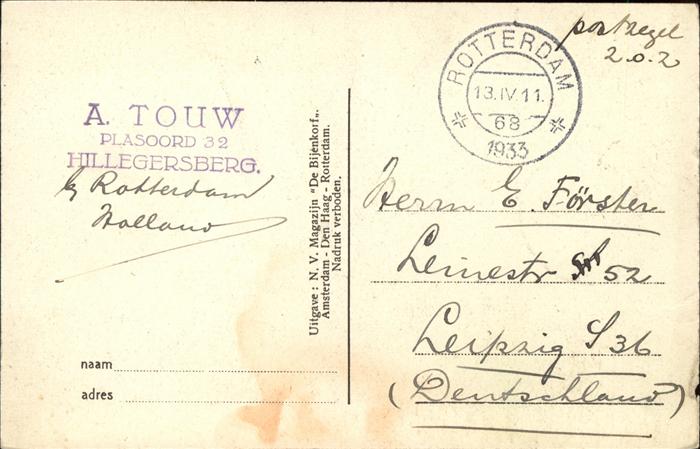 postzegel
z.o.z
ROTTERDAM
13.IV.11.
68
1933
A. TOUW
PLASOORD 32
HILLEGERSBERG.
by Rotterdam
Holland
Uitgave: N. V. Magazijn "De Bijenkorf".
Amsterdam - Den Haag - Rotterdam.
Nadruk verboden.
Herrn E. Förster
Leinestr 52
Leipzig S 36
(Deutschland)
naam
adres